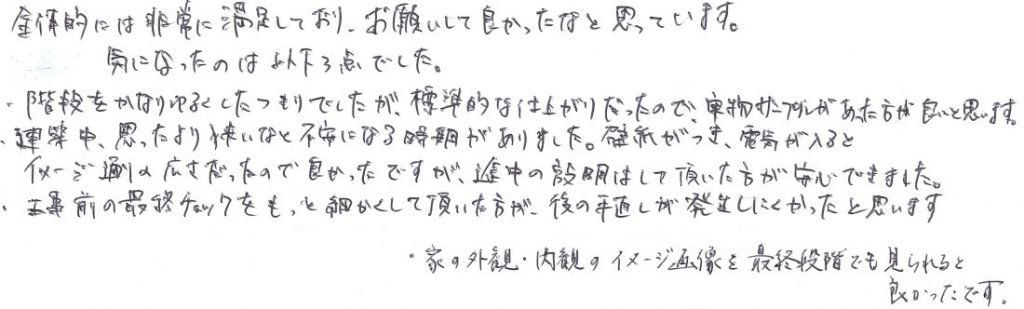 全体的には非常に満足しており、お願いして良かったなと思っています。
気になったのは以下3点でした。
・階段をかなりゆるくしたつもりでしたが、標準的な仕上がりだったので、実物サンプルがあった方が良いと思います。
・建築中、思ったより狭いなと不安になる時期がありました。壁紙がつき、電気が入ると
イメージ通りの広さだったので良かったですが、途中の説明はして頂いた方が安心できました。
・工事前の最終チェックをもっと細かくして頂いた方が、後の手直しが発生しにくかったと思います
・家の外観・内観のイメージ画像を最終段階でも見られると
良かったです。